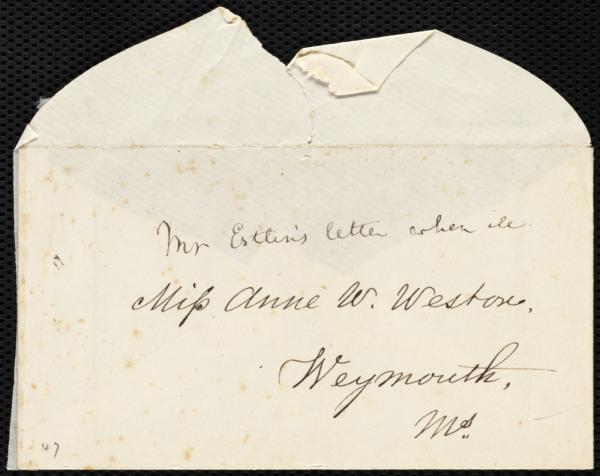 Mr Estlin's letter when ill.
Miss Anne W. Weston,
Weymouth,
Ms.
47